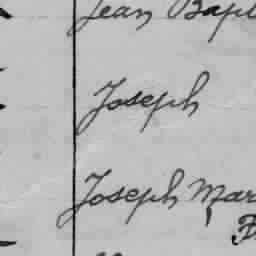 Jean Bapt
Joseph
Joseph Mar